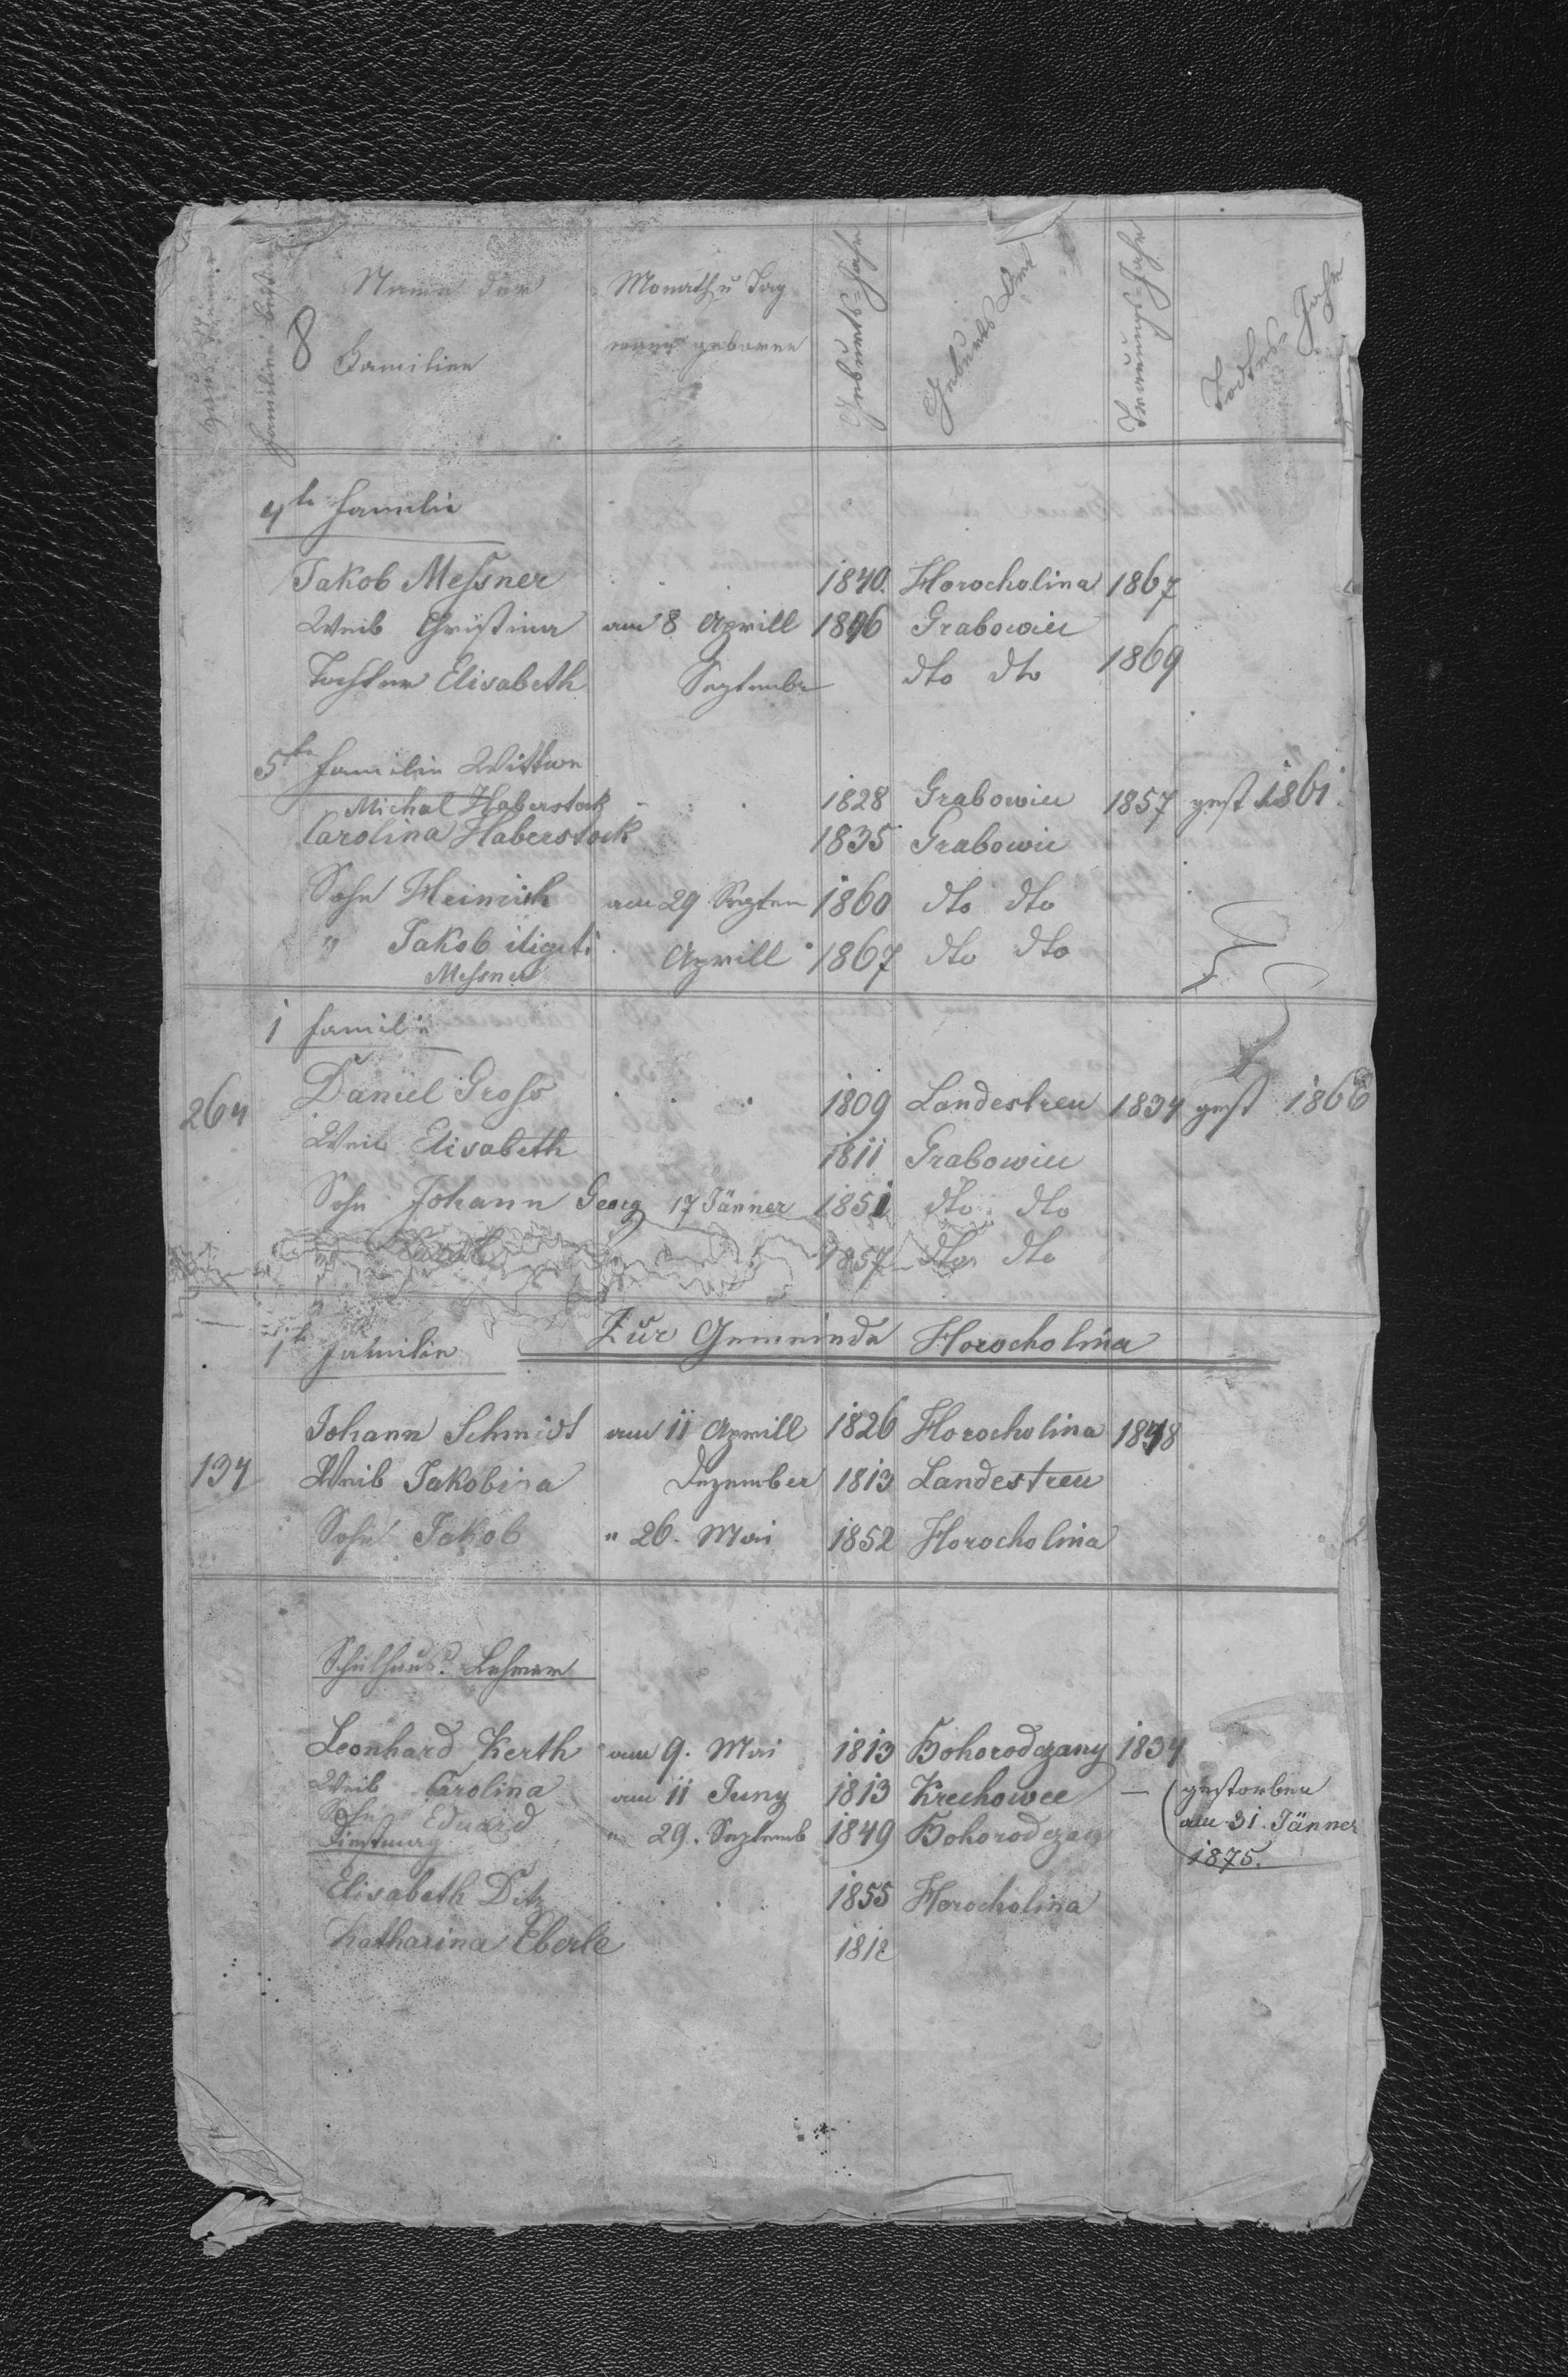 Haus Numer
Familien besti
8
Name der Familien
Monath u Tag wann geboren
Geburts=Jahr
Geburts Ort
Trauungs=Jahr
Todtes=Jahr
4te Familie
Jakob Messner 1840. Horocholina 1867
Weib Christina am 8 Aprill 1846 Grabowiec
Tochter Elisabeth September dto dto 1869
5te Familie Wittwe
Michal Haberstock 1828 Grabowiec 1857 gest 1861
Carolina Haberstock 1835 Grabowic
Sohn Heinrich am 29 Septem 1860 dto dto
" Jakob iligit: Aprill 1867 dto dto
Messner
1 Familie
264 Daniel Gross 1809 Landestreu 1834 gest 1866
Weib Elisabeth 1811 Grabowiec
Sohn Johann Georg 17 Jänner 1851 dto dto
1857 dto dto
1te Familie Zur Gemeinde Horocholina
Johann Schmidt am 11 Aprill 1826 Horocholina 1848
134 Weib Jakobina Dezember 1813 Landestreu
Sohn Jakob " 26. Mai 1852 Horocholina
Schulhaus. Lehrer
Leonhard Kerth am 9. Mai 1813 Bohorodczany 1834
Weib Carolina am 11 Juny 1813 Krechowce — gestorben
Sohn Eduard " 29. Septemb 1849 Bohorodczany am 31. Jänner
Dinstmag 1875.
Elisabeth Ditz 1855 Horocholina
Katharina Eberle